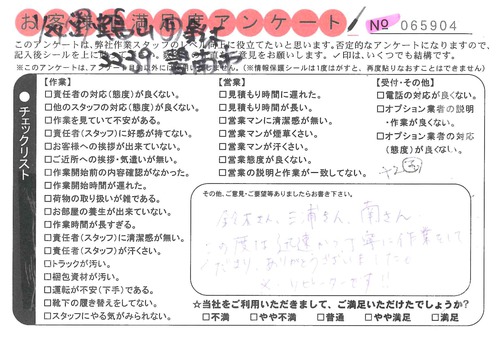 お客様満足度アンケート
No 065904
このアンケートは、弊社作業スタッフのレベル向上に役立てたいと思います。否定的なアンケートになりますので、
記入後シールを上に
ご意見をお願いします。✓印は、いくつでも結構です。
※このアンケートは、アンケート目的以外に
(※情報保護シールは1度がすと、再度貼りなおすことはできません)
チェックリスト
【作業】
□責任者の対応(態度)が良くない。
□他のスタッフの対応(態度)が良くない。
□作業を見ていて不安がある。
□責任者(スタッフ)に好感が持てない。
□お客様への挨拶が出来ていない。
□ご近所への挨拶・気遣いが無い。
□作業開始前の内容確認がなかった。
□作業開始時間が遅れた。
□荷物の取り扱いが雑である。
□お部屋の養生が出来ていない。
□作業時間が長すぎる。
□責任者(スタッフ)に清潔感が無い。
□責任者(スタッフ)が汗くさい。
□トラックが汚い。
□梱包資材が汚い。
□運転が不安(下手)である。
□靴下の履き替えをしてない。
□スタッフにやる気がみられない。
【営業】
□見積もり時間に遅れた。
□見積もり時間が長い。
□営業マンに清潔感が無い。
□営業マンが煙草くさい。
□営業マンが汗くさい。
□営業態度が良くない。
□営業の説明と作業が一致してない。
【受付・その他】
□電話の対応が良くない。
□オプション業者の説明
・作業が良くない。
□オプション業者の対応
(態度)が良くない。
その他、ご意見・ご要望等ありましたらお書き下さい。
鈴木さん、三浦さん、南さん
この度は迅速かつ丁寧に作業をして
くださり、ありがとうございました。
リピーターです!!
☆当社をご利用いただきまして、ご満足いただけたでしょうか?
□不満 □やや不満 □普通 □やや満足 □満足